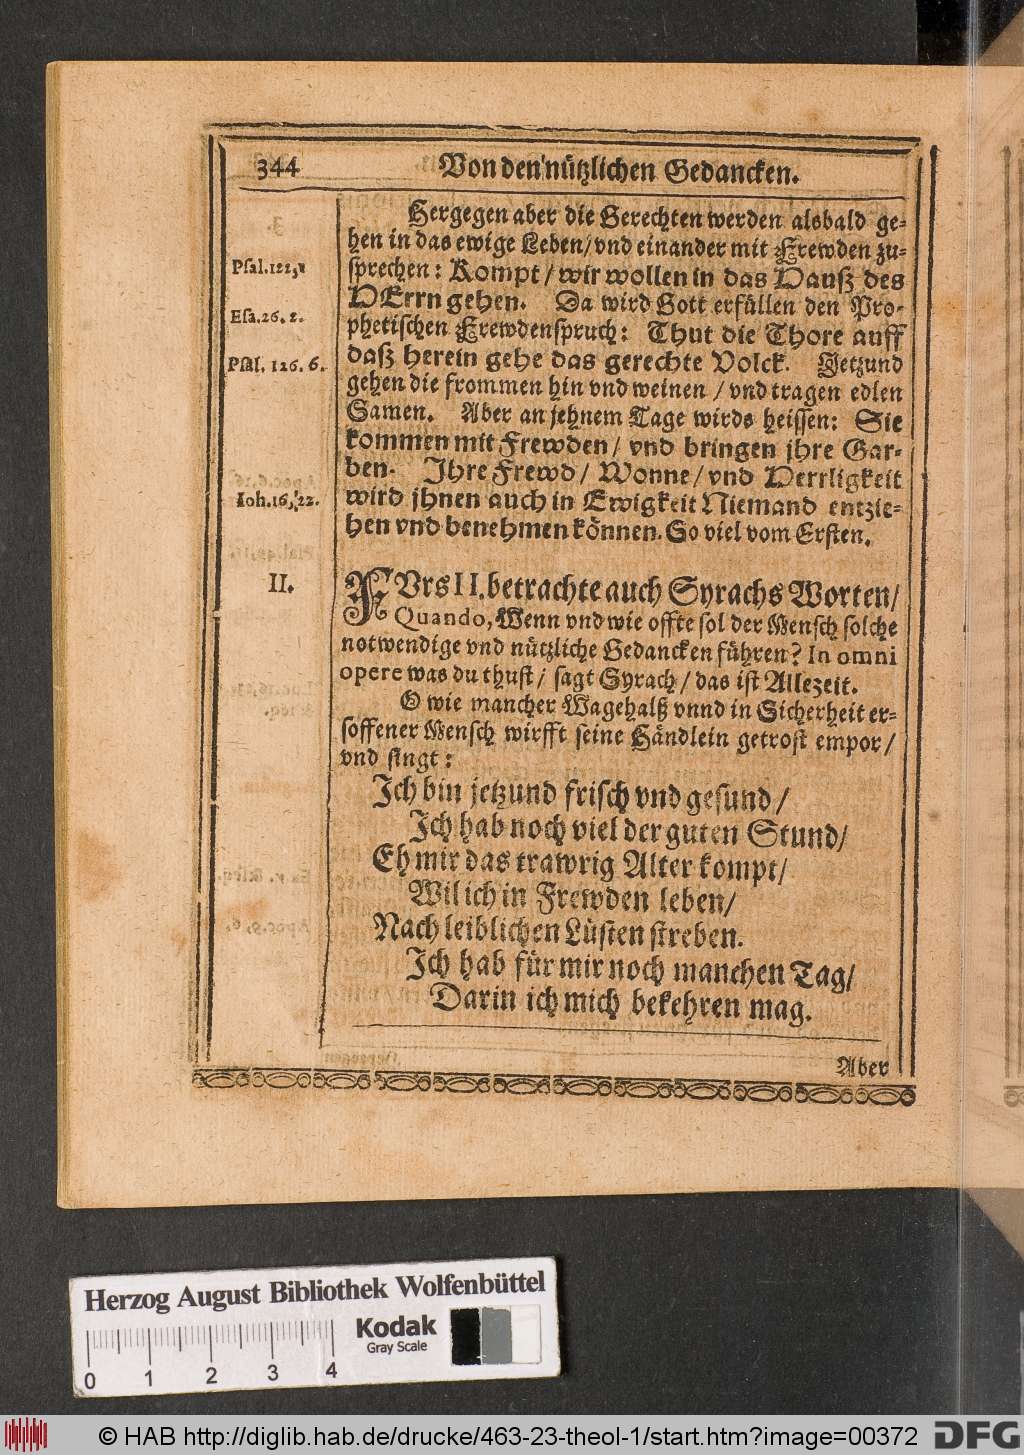 344 Von den nützlichen Gedancken.
Hergegen aber die Gerechten werden alsbald ge-
hen in das ewige Leben/vnd einander mit Frewden zu-
Psal.122,1
sprechen: Kompt/wir wollen in das Hauß des
HErrn gehen. Da wird Gott erfüllen den Pro-
Esa.26.2.
phetischen Frewdenspruch: Thut die Thore auff
daß herein gehe das gerechte Volck. Jetzund
Psal. 126.6.
gehen die frommen hin vnd weinen / vnd tragen edlen
Samen. Aber an jehnem Tage wirds heissen: Sie
kommen mit Frewden/ vnd bringen jhre Gar-
ben. Ihre Frewd/ Wonne/ vnd Herrligkeit
Ioh.16,22.
wird jhnen auch in Ewigkeit Niemand entzie-
hen vnd benehmen können. So viel vom Ersten.
II.
FVrs II. betrachte auch Syrachs Worten/
Quando, Wenn vnd wie offte sol der Mensch solche
notwendige vnd nützliche Gedancken führen? In omni
opere was du thust/ sagt Syrach/ das ist Allezeit.
O wie mancher Wagehalß vnnd in Sicherheit er-
soffener Mensch wirfft seine Händlein getrost empor/
vnd singt:
Ich bin jetzund frisch vnd gesund/
Ich hab noch viel der guten Stund/
Eh mir das trawrig Alter kompt/
Wil ich in Frewden leben/
Nach leiblichen Lüsten streben.
Ich hab für mir noch manchen Tag/
Darin ich mich bekehren mag.
Aber
Herzog August Bibliothek Wolfenbüttel
Kodak
Gray Scale
0 1 2 3 4
© HAB http://diglib.hab.de/drucke/463-23-theol-1/start.htm?image=00372
DFG